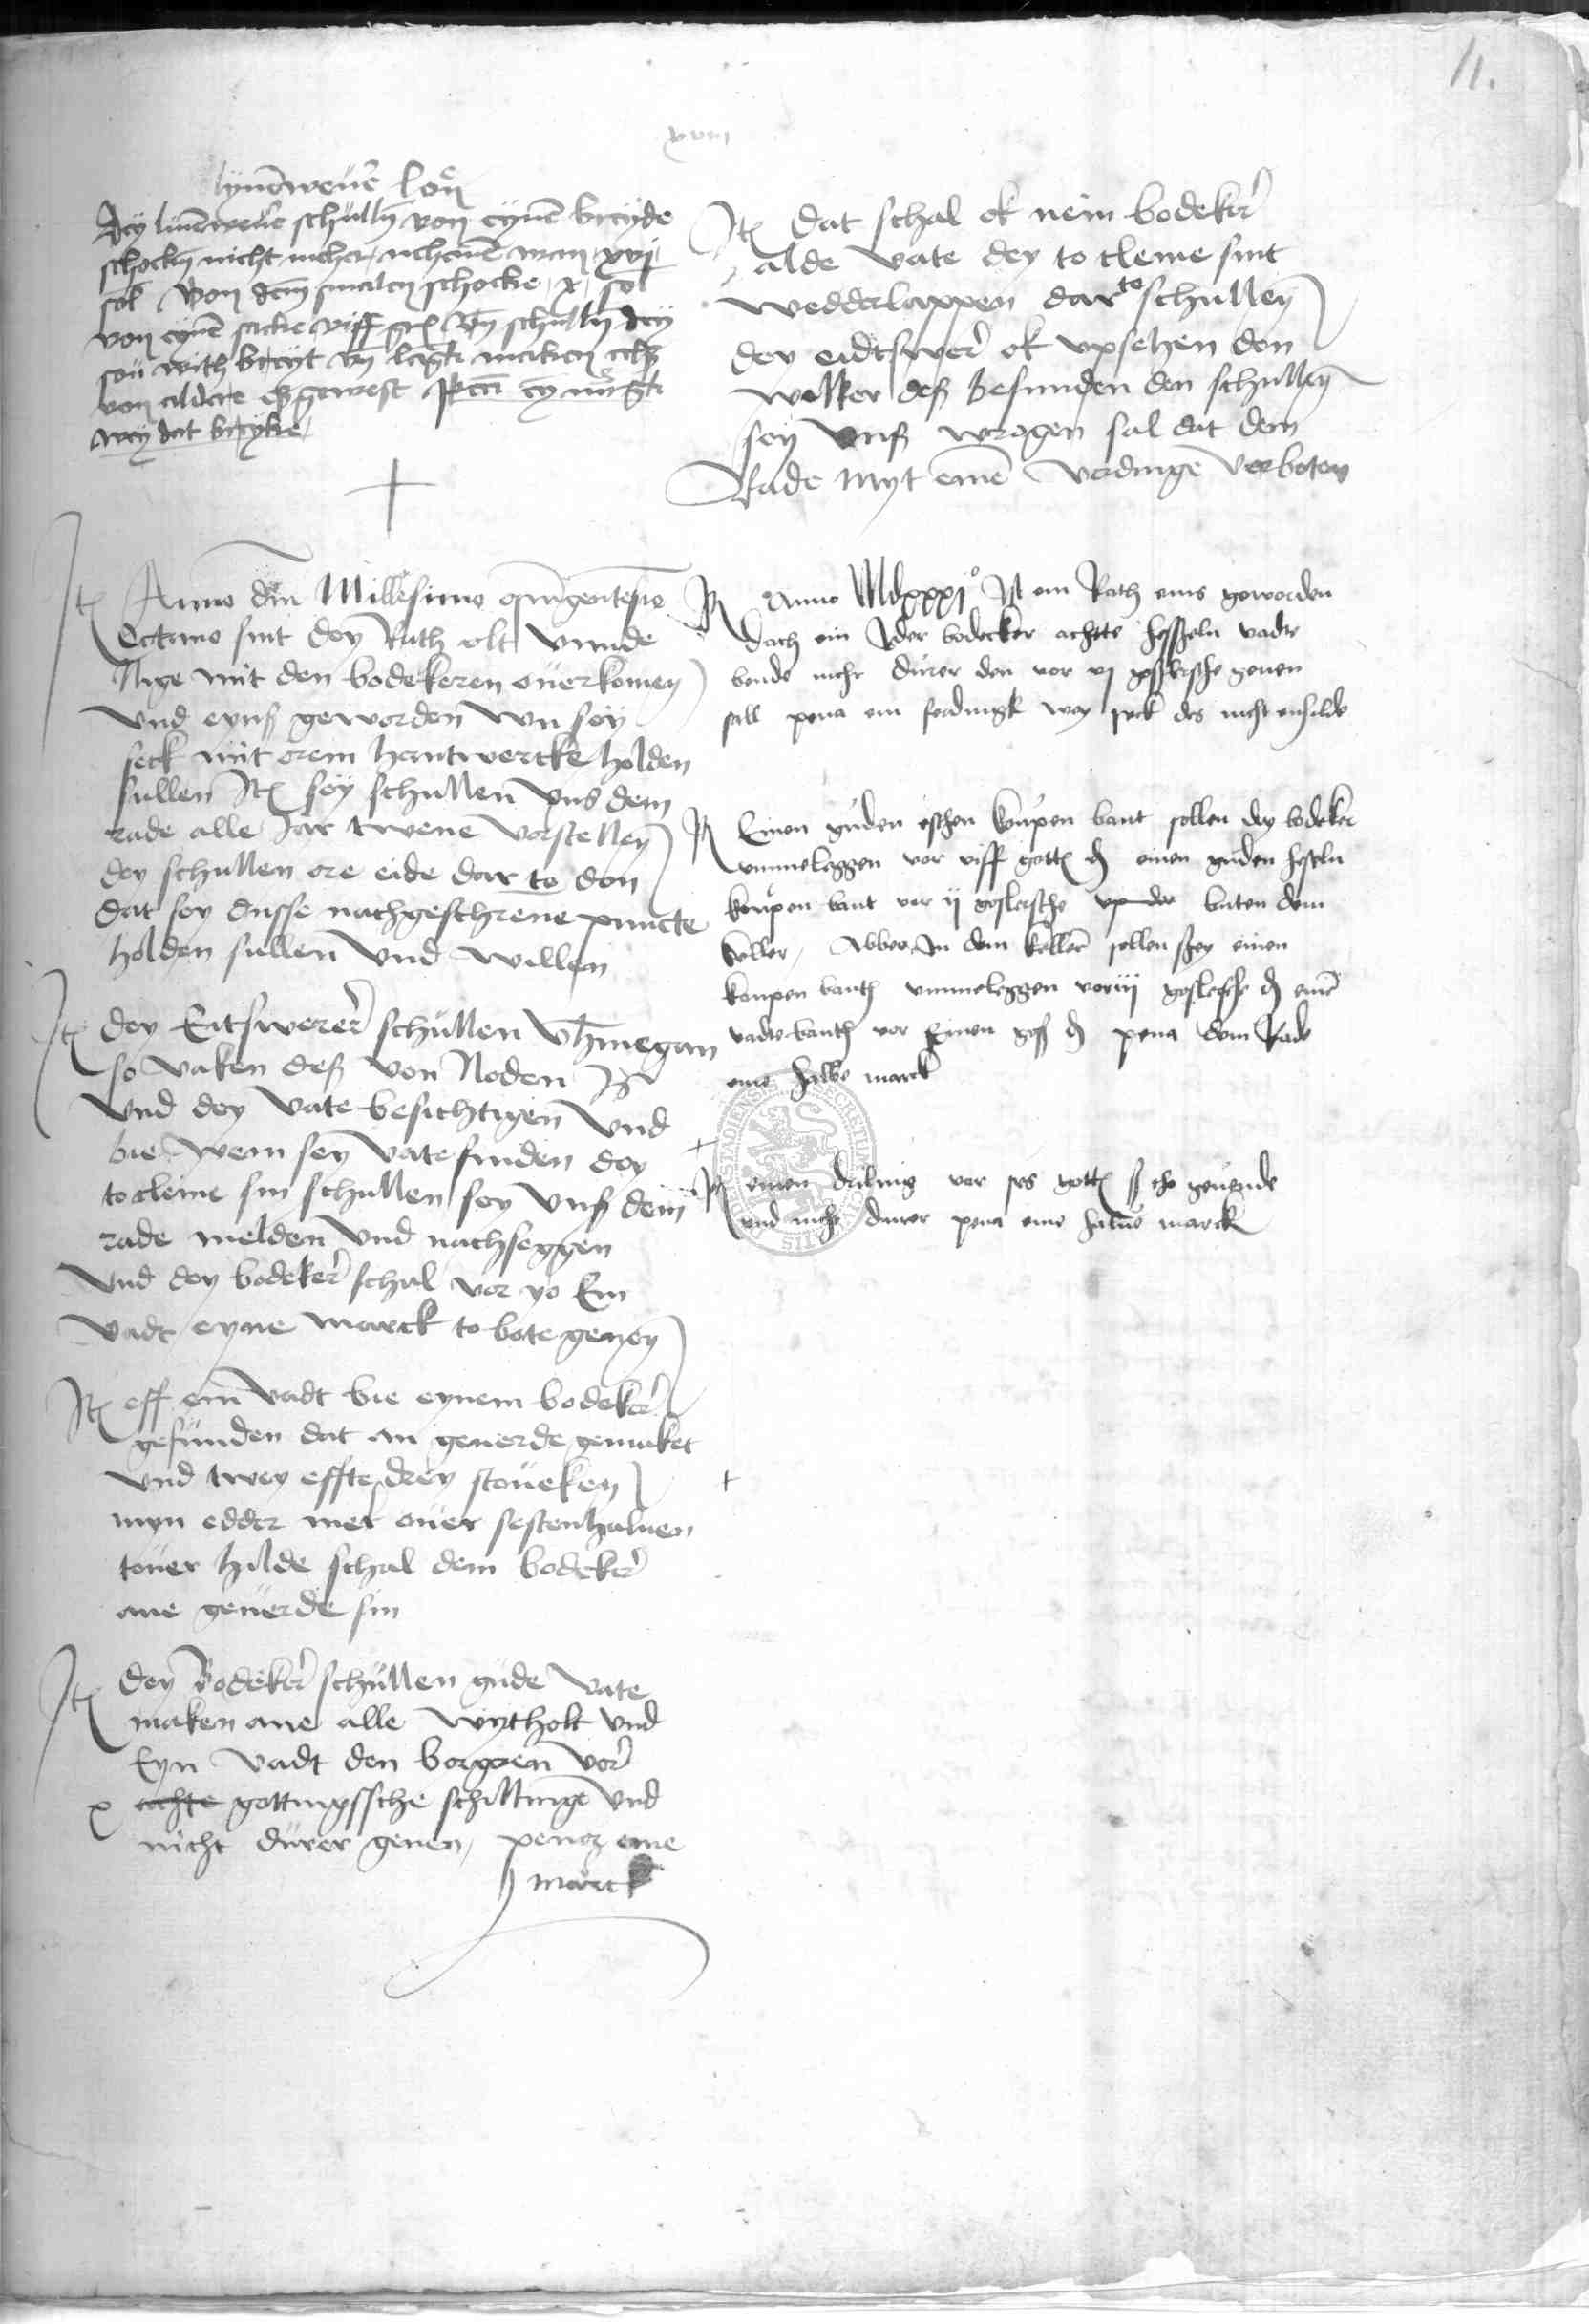 11.
xviii
lynēweuer loū
Dey linēweuer schullñ von eynē breyde
schockñ nicht meher nehemē wen xvj
sol von dem smalen schocke x sol
von eynē sacke viff gt̃ vñ schullñ dey
so with breyt vñ langk maken alß
von alder eß gewest
wey dat breyke
Jtē Anno dm̄ Millesimo quingentesimo
Octauo sint dey Rath olt vnnde
Nige mit den bodekeren ouerkomen
vnd eynß geworden wu sey
seck mit orem hantwercke holden
sullen Jtē sey schullen vns dem
rade alle Jar twene vorstellen
dey schullen ore eide dar to don
dat sey dusse nachgeschreue puncte
holden sullen vnd willen
Jtē dey Eitsweren schullen vm̄megan
so vaken deß von Noden iß
vnd dey vate besichtigen vnd
bie wem sey vate finden dey
to cleine sin schullen sey vnß dem
rade melden vnd nachseggen
vnd dey bodeker schal vor yo Ein
vadt eyne marck to bote geuen
Jtē eff ein vadt bie eynem bodeker
gefunden dat an geuerde gemaket
vnd twey effte drey stoueken
myn edder mer ouer sestenhaluen
touer hilde schal dem bodeker
ane geuerde sin
Jtē dey Bodeker schullen gude vate
maken ane alle wytholt vnd
Eyn vadt den borgeren vor
x achte gottingssche schillinge vnd
nicht durer geuen, pena eine
marck
Jtē dat schal ok nein bodeker
alde vate dey to cleine sint
wedderlappen dar to schullen
dey eidtswer ok vpsehen don
welker deß befunden den schullen
sey vnß wrogen sal dat dem
Rade myt eine verdinge verboten
Jtē Anno Mdxxxjº Ist ein Rath eins geworden
dath ein Jder bodecker achtte heßeln vadt
bende nicht durer den vor vj goßlersche geuen
sall pena ein ferdingk wey seck des nicht enhilde
Jtē Einen guden eschen koupen bant sollen dey bodeker
vmmeleggen vor viff gott ₰ einen guden heseln
koupen bant vor ij goslersche vp der buten dem
keller, Abber In dem keller sollen sey einen
koupen banth vmmeleggen vor iij goslersche ₰ eine
vadt banth vor Einen goß ₰ pena dem Rade
eine halbe marck
Jtē einen druling vor ses gott ß tho geuende
vnd nicht durer pena eine halue marck